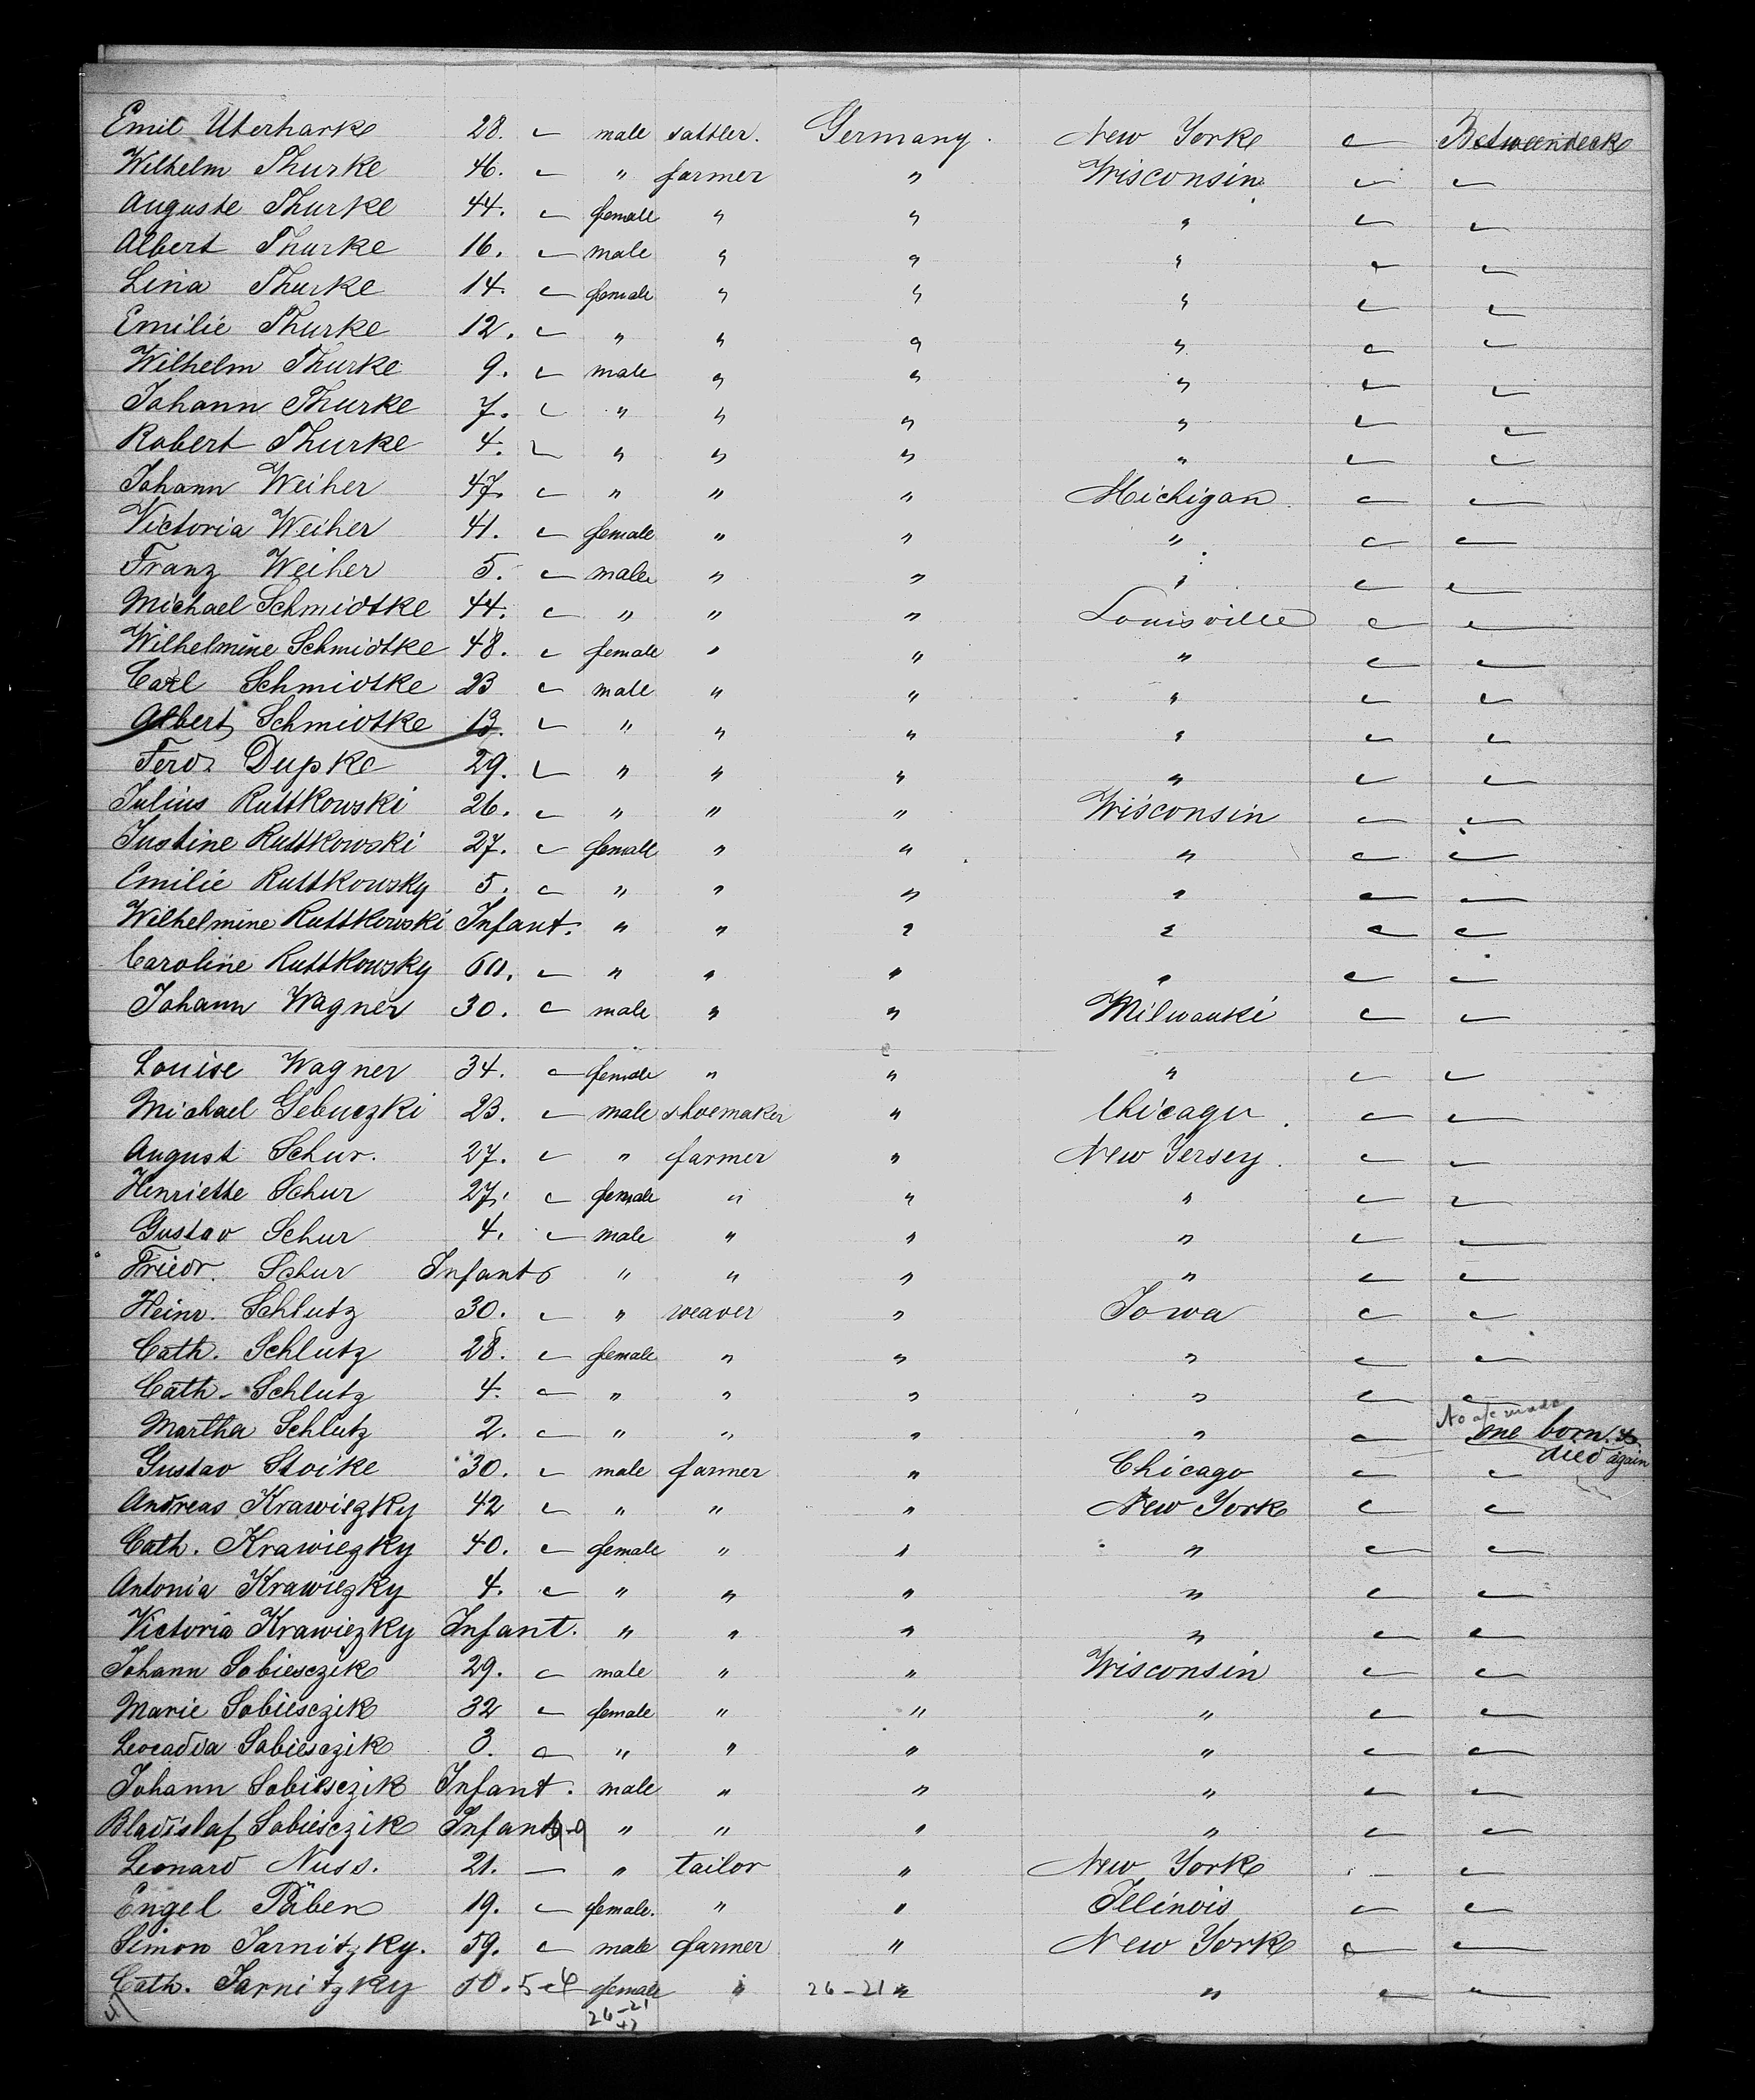 Emil Uterharke 28. male sattler. Germany. New Yorke Betweendeck
Wilhelm Thurke 46. " farmer " Wisconsin
Auguste Thurke 44. female " " "
Albert Thurke 16. male " " "
Lina Thurke 14. female " " "
Emilie Thurke 12. " " " "
Wilhelm Thurke 9. male " " "
Johann Thurke 7. " " " "
Robert Thurke 4. " " " "
Johann Weiher 47. " " " Michigan
Victoria Weiher 41. female " " "
Franz Weiher 5. male " " "
Michael Schmidtke 44. " " " Louisville
Wilhelmine Schmidtke 48. female " " "
Carl Schmidtke 23 male " " "
Albert Schmidtke 13. " " " "
Ferd. Dupke 29. " " " "
Julius Ruttkowski 26. " " " Wisconsin
Justine Ruttkowski 27. female " " "
Emilie Ruttkowsky 5. " " " "
Wilhelmine Ruttkowski Infant. " " " "
Caroline Ruttkowsky 60. " " " "
Johann Wagner 30. male " " Milwauki
Louise Wagner 34. female " " "
Michael Gebuczki 23. male shoemaker " Chicago
August Schur. 27. " farmer " New Yersey.
Henriette Schur 27. female " " "
Gustav Schur 4. male " " "
Friedr. Schur Infant " " " "
Heinr. Schlutz 30. " weaver " Iowa
Cath. Schlutz 28. female " " "
Cath. Schlutz 4. " " " "
Martha Schlutz 2. " " " " one born &
died again
Gustav Stoike 30. male farmer " Chicago
Andreas Krawiezky 42 " " " New York
Cath. Krawiezky 40. female " " "
Antonia Krawiezky 4. " " " "
Victoria Krawiezky Infant. " " " "
Johann Sobiesczik 29. male " " Wisconsin
Marie Sobiesczik 32 female " " "
Leocadia Sobiesczik 3. " " " "
Johann Sobiesczik Infant. male " " "
Bladislaf Sobiesczik Infant " " " "
Leonard Nuss. 21. " tailor " New York
Engel Päben 19. female. " " Illinois
Simon Jarnitzky. 59. male farmer " New York
Cath. Jarnitzky 50. female " 26-21 " "
26-21